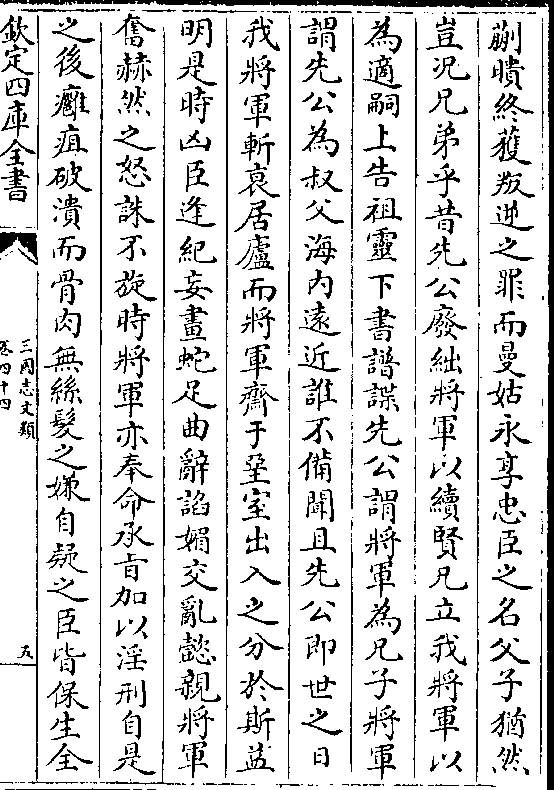 蒯聵終獲叛逆之罪而曼姑永享忠臣之名父子猶然
豈況兄弟乎昔先公廢絀將軍以續賢兄立我將軍以
為適嗣上告祖靈下書譜諜先公謂將軍為兄子將軍
謂先公為叔父海內遠近誰不備聞且先公即世之日
我將軍斬衰居廬而將軍齋于堊室出入之分於斯益
明是時凶臣逄紀妄畫蛇足曲辭諂媚交亂懿親將軍
奮赫然之怒誅不旋時將軍亦奉命承旨加以淫刑自是
之後癰疽破潰而骨肉無絲髮之嫌自疑之臣皆保生全
欽定四庫全書
三國志文類
卷四十四
五